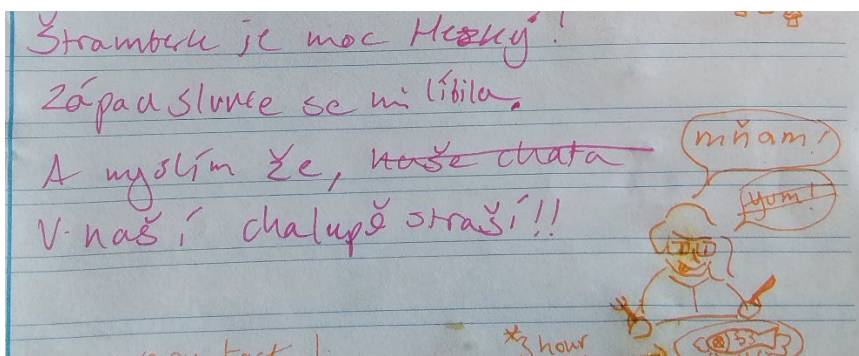 Štramberk je moc Hezký!
Západ slunce se mi líbila.
A myslím že, naše chata
V naší chalupě straší!!
mňam!
yum!
*3 hour